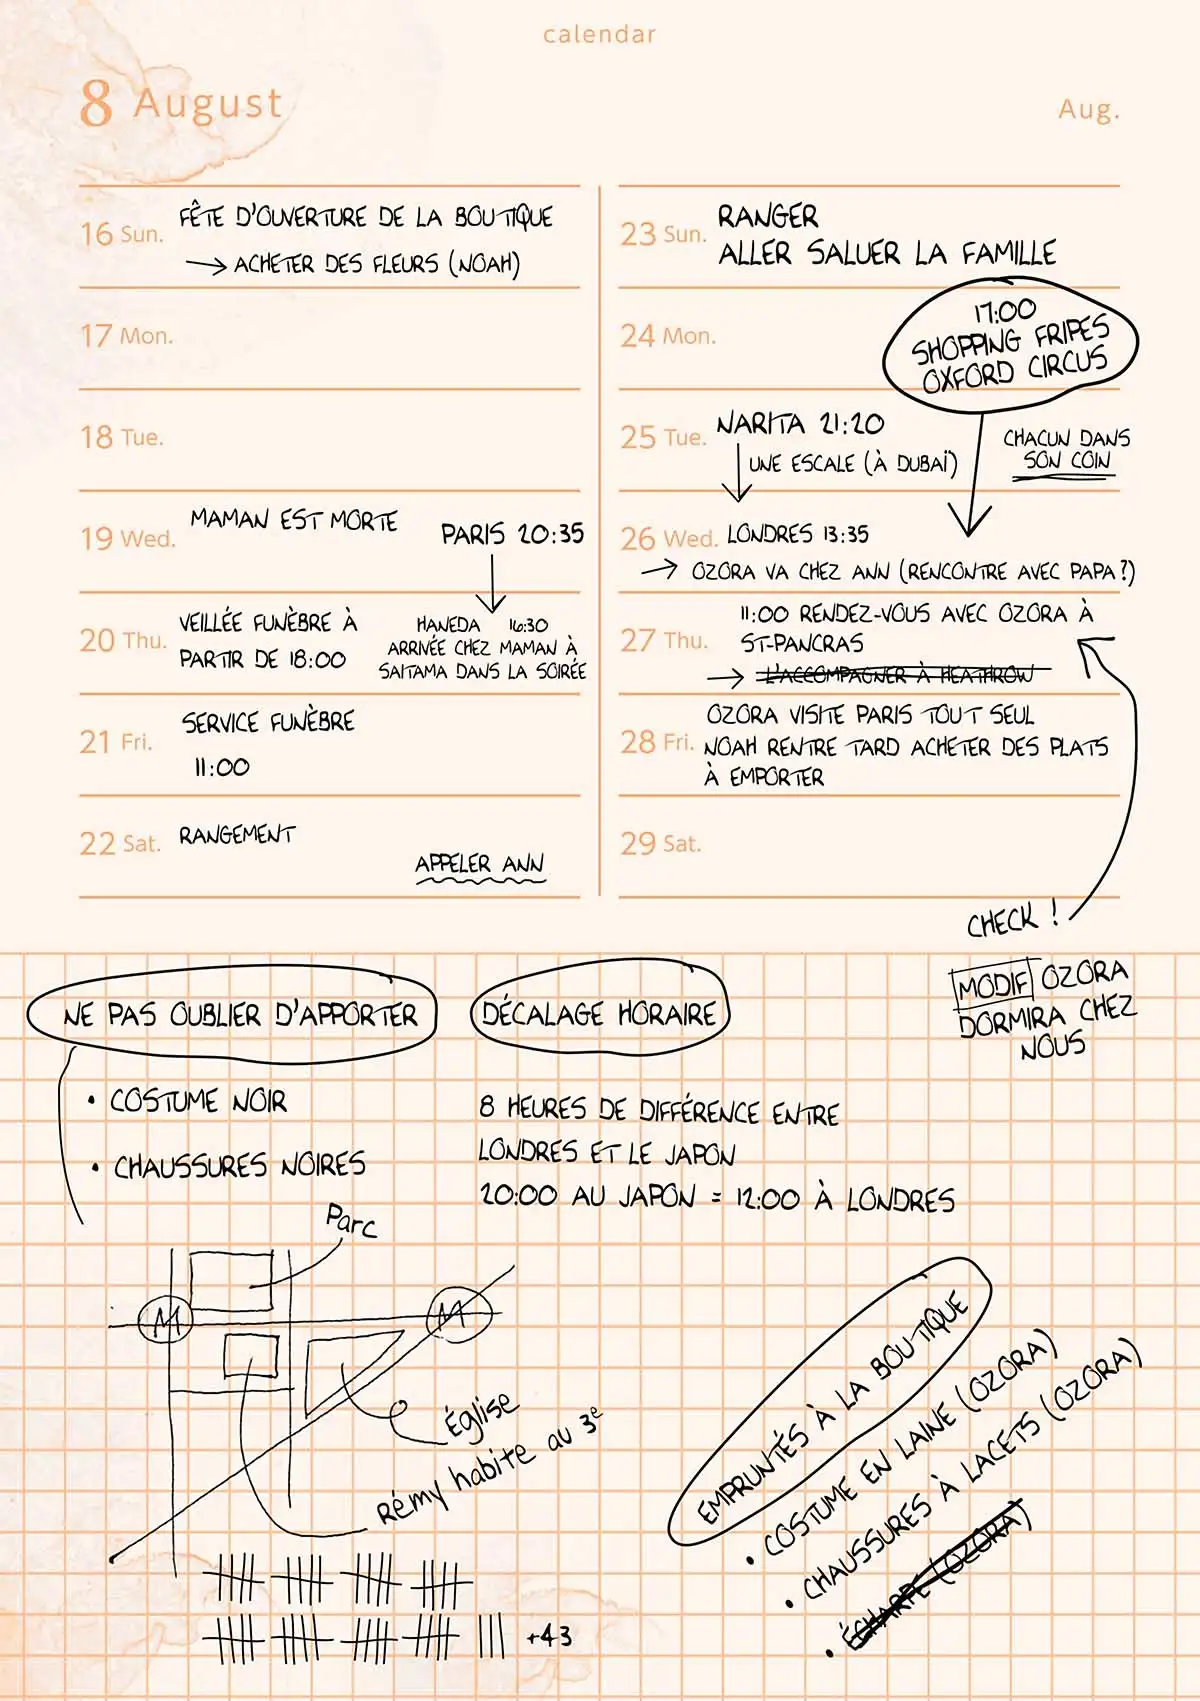 calendar
8 August
Aug.
16 Sun.
FÊTE D'OUVERTURE DE LA BOUTIQUE
→ ACHETER DES FLEURS (NOAH)
17 Mon.
18 Tue.
19 Wed.
MAMAN EST MORTE
PARIS 20:35
20 Thu.
VEILLÉE FUNÈBRE À
PARTIR DE 18:00
HANEDA 16:30
ARRIVÉE CHEZ MAMAN À
SAITAMA DANS LA SOIRÉE
21 Fri.
SERVICE FUNÈBRE
11:00
22 Sat.
RANGEMENT
APPELER ANN
23 Sun.
RANGER
ALLER SALUER LA FAMILLE
24 Mon.
17:00
SHOPPING FRIPES
OXFORD CIRCUS
25 Tue.
NARITA 21:20
UNE ESCALE (À DUBAÏ)
CHACUN DANS
SON COIN
26 Wed.
LONDRES 13:35
→ OZORA VA CHEZ ANN (RENCONTRE AVEC PAPA?)
27 Thu.
11:00 RENDEZ-VOUS AVEC OZORA À
ST-PANCRAS
→ L'ACCOMPAGNER À HEATHROW
28 Fri.
OZORA VISITE PARIS TOUT SEUL
NOAH RENTRE TARD ACHETER DES PLATS
À EMPORTER
29 Sat.
CHECK !
MODIF OZORA
DORMIRA CHEZ
NOUS
NE PAS OUBLIER D'APPORTER
• COSTUME NOIR
• CHAUSSURES NOIRES
DÉCALAGE HORAIRE
8 HEURES DE DIFFÉRENCE ENTRE
LONDRES ET LE JAPON
20:00 AU JAPON = 12:00 À LONDRES
Parc
M
M
Église
Rémy habite au 3e
+43
EMPRUNTÉS À LA BOUTIQUE
• COSTUME EN LAINE (OZORA)
• CHAUSSURES À LACETS (OZORA)
• ÉCHARPE (OZORA)